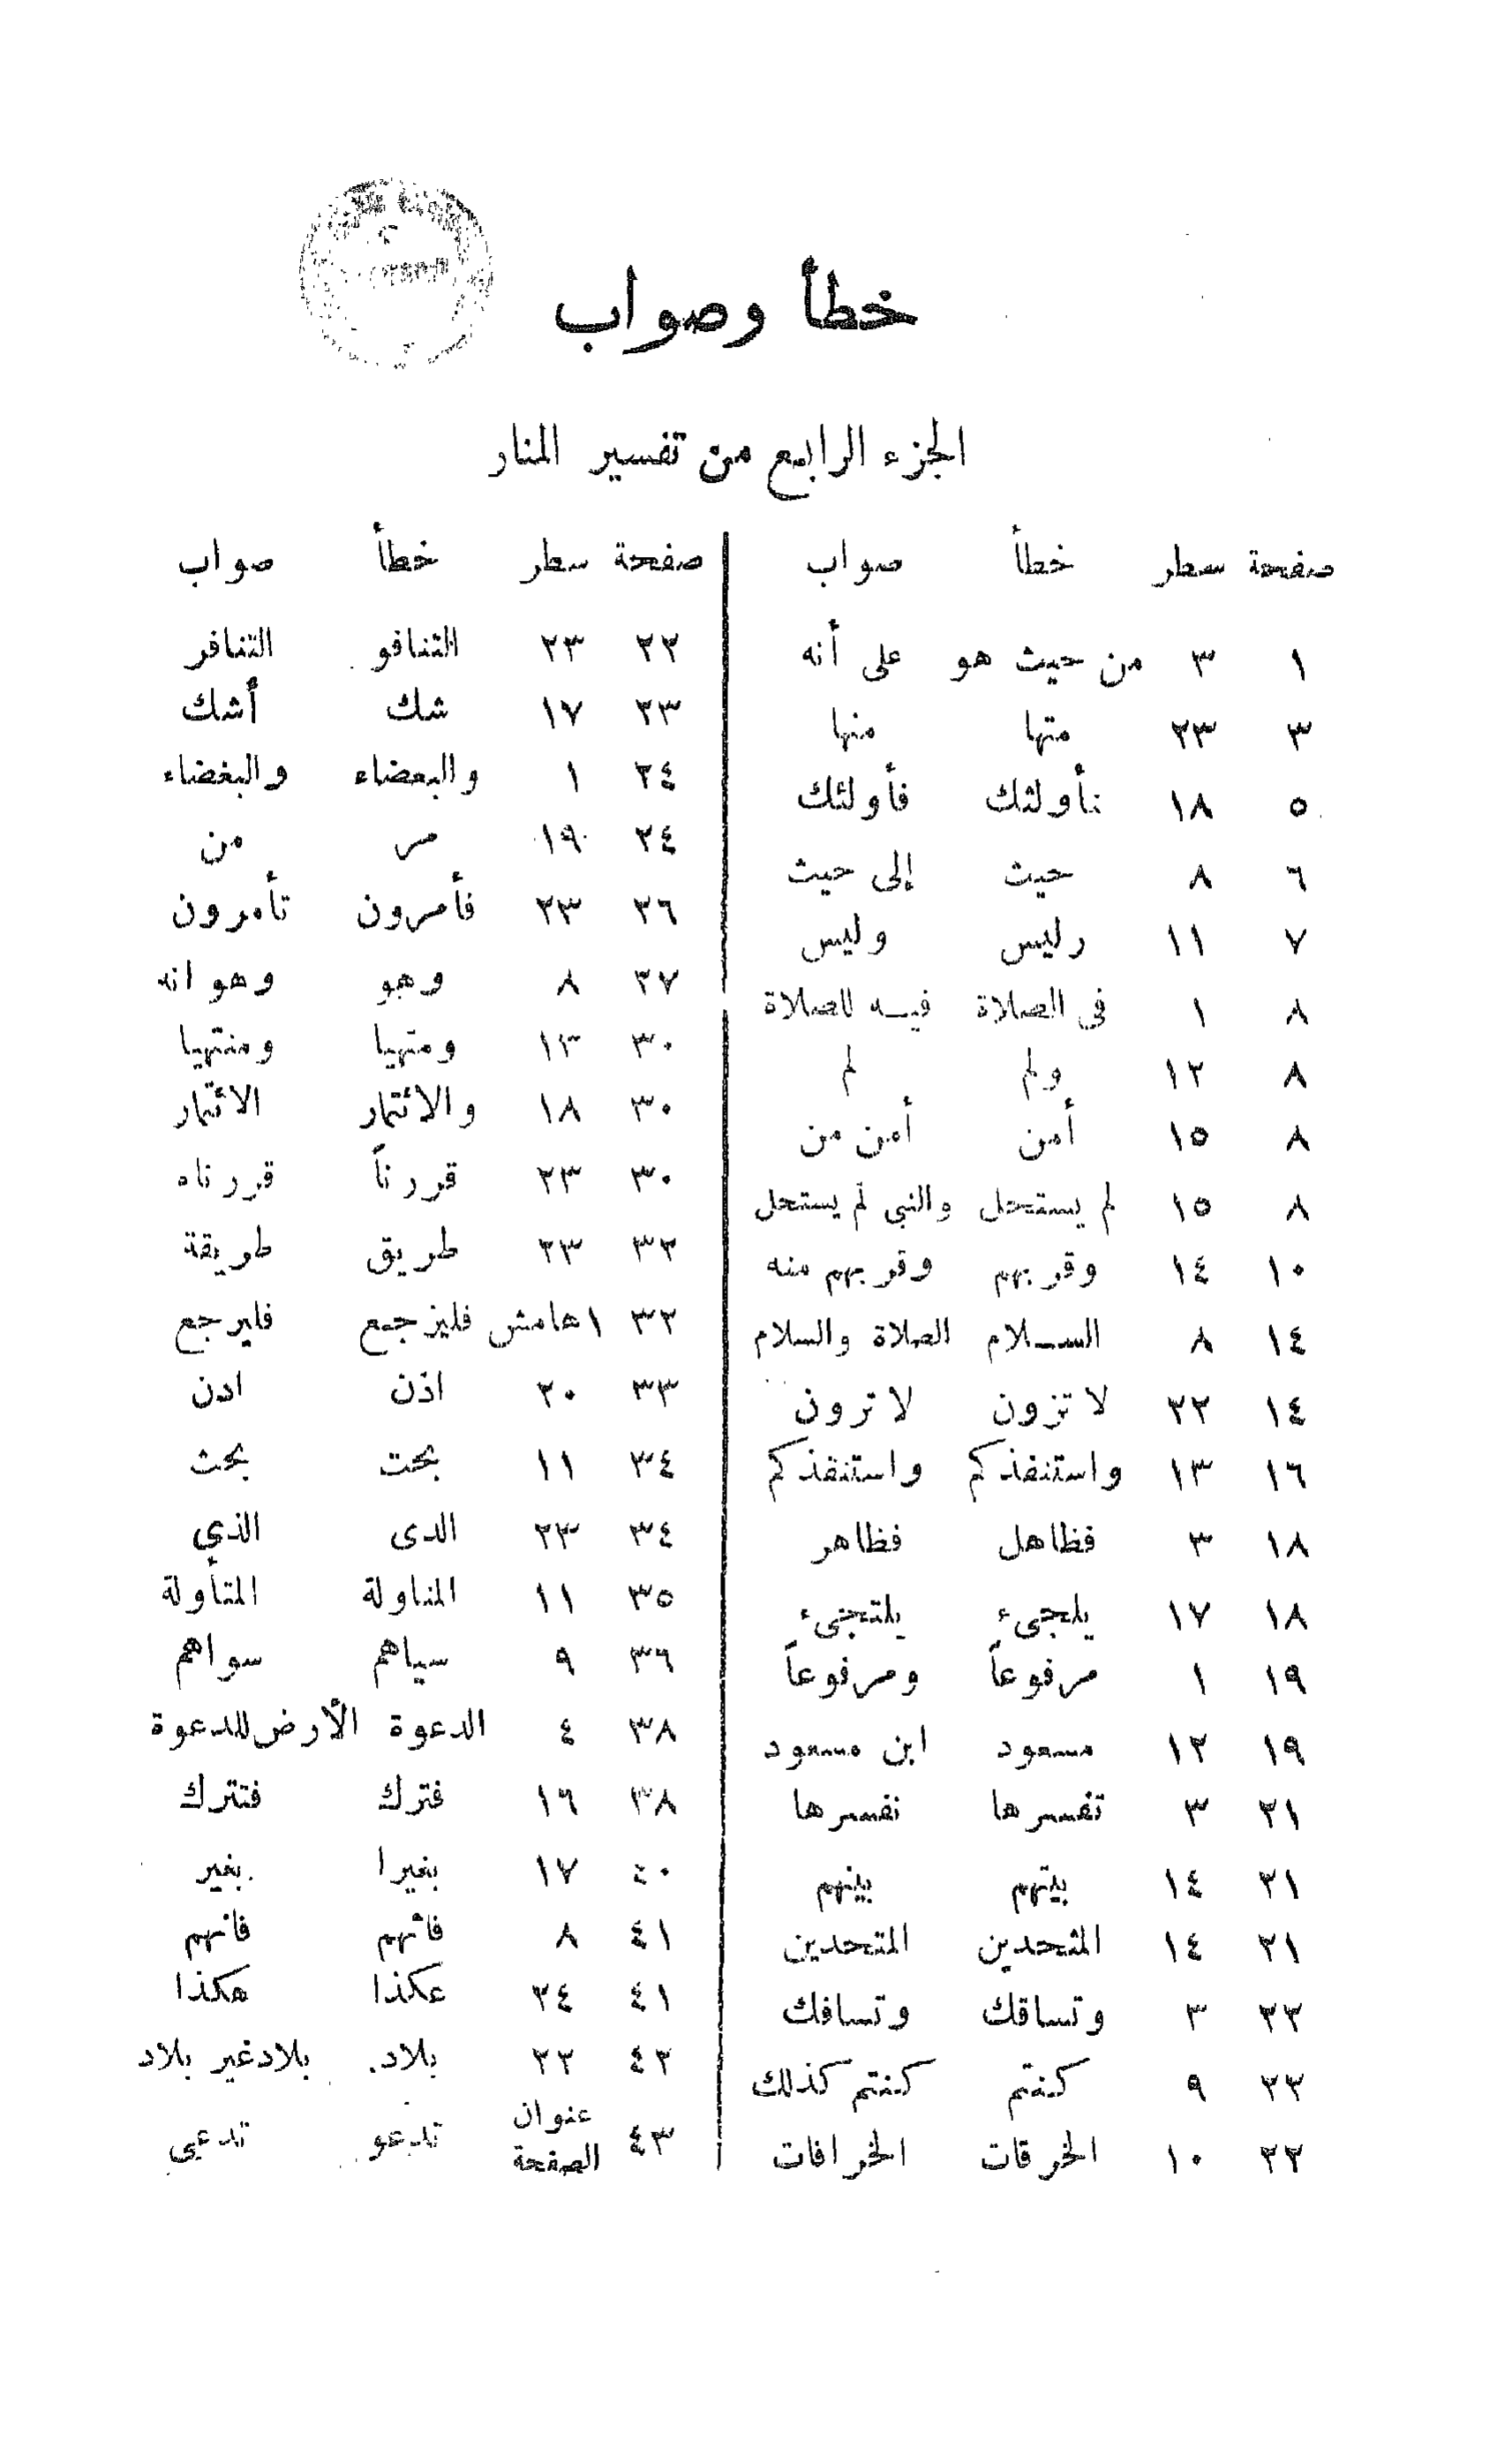 خطأ وصواب
الجزء الرابع من تفسير المنار
صفحة سطر خطأ صواب
١ ٣ من حيث هو على أنه
٣ ٢٣ متها منها
٥ ١٨ نأولئك فأولئك
٦ ٨ حيث إلى حيث
٧ ١١ رليس وليس
٨ ١ فى الصلاة فيه للصلاة
٨ ١٢ ولم لم
٨ ١٥ أمن أمن من
٨ ١٥ لم يستحل والنبى لم يستحل
١٠ ١٤ وقربهم وقربهم منه
١٤ ٨ السلام الصلاة والسلام
١٤ ٢٢ لا تزون لا ترون
١٦ ١٣ واستنفذكم واستنقذكم
١٨ ٣ فظاهل فظاهر
١٨ ١٧ يلجىء يلتجىء
١٩ ١ مرفوعاً ومرفوعاً
١٩ ١٢ مسعود ابن مسعود
٢١ ٣ تفسرها نفسرها
٢١ ١٤ بيتهم بينهم
٢١ ١٤ المثحدين المتحدين
٢٢ ٣ وتساقك وتسافك
٢٢ ٩ كنتم كنتم كذلك
٢٢ ١٠ الخرقات الخرافات
صفحة سطر خطأ صواب
٢٢ ٢٣ التنافو التنافر
٢٣ ١٧ شك أشك
٢٤ ١ والبعضاء والبغضاء
٢٤ ١٩ مر من
٢٦ ٢٣ فأمرون تأمرون
٢٧ ٨ وهو وهو انه
٣٠ ١٣ ومتهيا ومنتهيا
٣٠ ١٨ والائتمار الائتمار
٣٠ ٢٣ قررناً قررناه
٣٢ ٢٣ طريق طريقة
٣٢ ١ هامش فليزجع فليرجع
٣٣ ٢٠ اذن ادن
٣٤ ١١ بحت بحث
٣٤ ٢٣ الدى الذي
٣٥ ١١ المناولة المتأولة
٣٦ ٩ سياهم سواهم
٣٨ ٤ الدعوة الأرض للدعوة
٣٨ ١٦ فترك فتترك
٤٠ ١٧ بغيرا بغير
٤١ ٨ فائهم فانهم
٤١ ٢٤ عكذا هكذا
٤٢ ٢٢ بلاد بلاد غير بلاد
٤٣ عنوان الصفحة تدعو تدعى